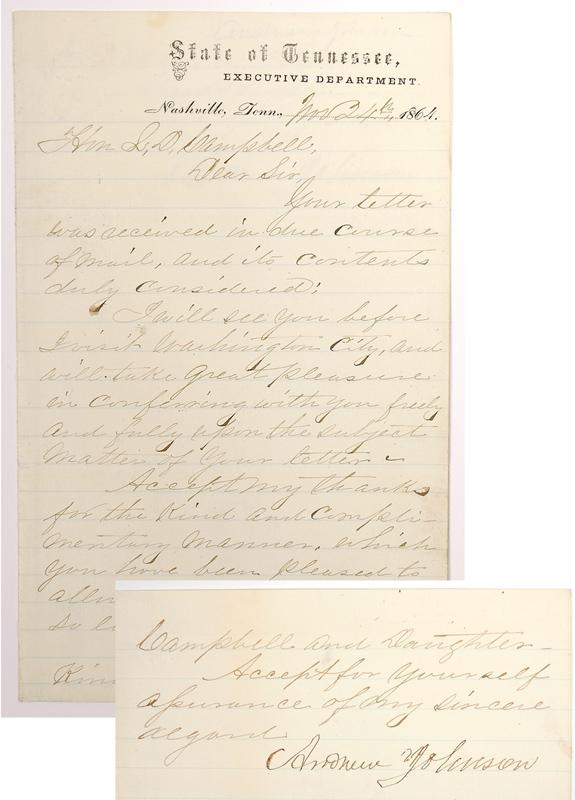 State of Tennessee,
EXECUTIVE DEPARTMENT.
Nashville, Tenn., Nov 24th, 1864.
Hon L, D, Campbell,
Dear Sir,
Your letter
was received in due course
of mail, and its contents
duly considered;
I will see you before
I visit Washington City, and
will take great pleasure
in conferring with you freely
and fully upon the subject
matter of your letter
Accept my thanks
for the kind and compli-
mentary manner, which
you have been pleased to
Campbell and Daughter-
Accept for yourself
assurance of my sincere
regard
Andrew Johnson